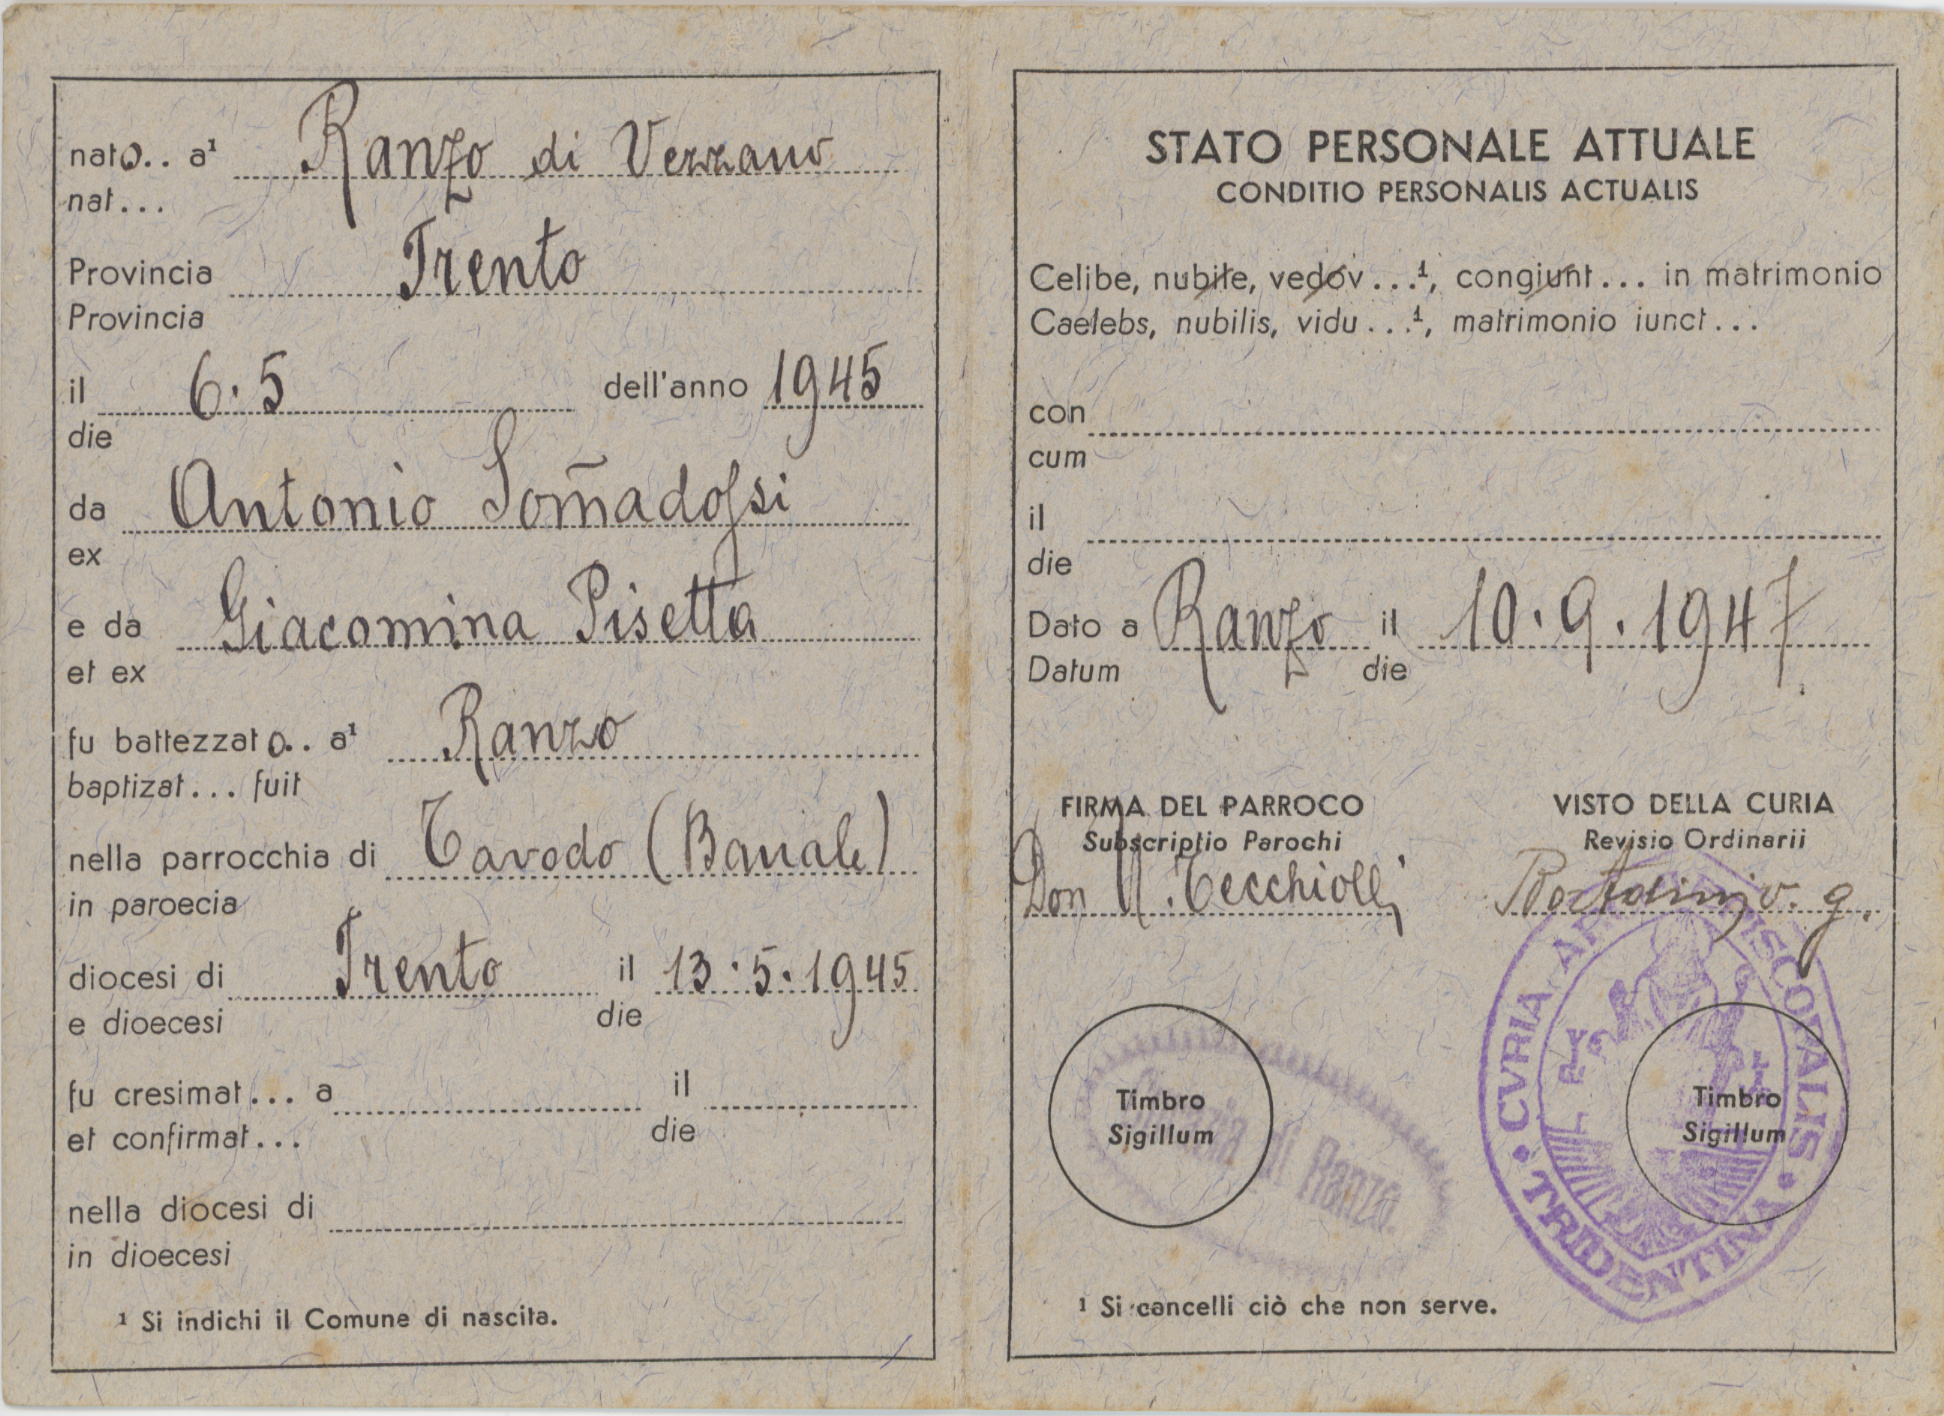 nato.. a¹ Ranzo di Vezzano
nat...
Provincia Trento
Provincia
il 6.5 dell'anno 1945
die
da Antonio Som̃adossi
ex
e da Giacomina Pisetta
et ex
fu battezzato.. a¹ Ranzo
baptizat... fuit
nella parrocchia di Tavodo (Banale)
in paroecia
diocesi di Trento il 13.5.1945
e dioecesi die
fu cresimat... a il
et confirmat... die
nella diocesi di
in dioecesi
¹ Si indichi il Comune di nascita.
STATO PERSONALE ATTUALE
CONDITIO PERSONALIS ACTUALIS
Celibe, nubile, vedov...¹, congiunt... in matrimonio
Caelebs, nubilis, vidu...¹, matrimonio iunct...
con
cum
il
die
Dato a Ranzo il 10.9.1947
Datum die
FIRMA DEL PARROCO
Subscriptio Parochi
Don N. Tecchiolli
VISTO DELLA CURIA
Revisio Ordinarii
v. g.
Timbro
Sigillum
di Ranzo.
Timbro
Sigillum
CVRIA ARCHIEPISCOPALIS
TRIDENTINA
¹ Si cancelli ciò che non serve.